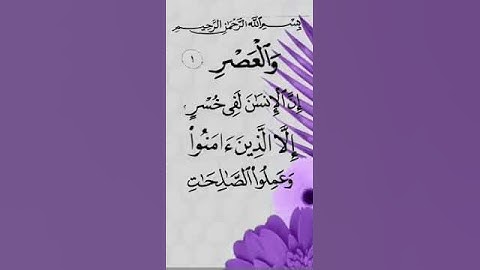 بِسْمِ اللَّهِ الرَّحْمَٰنِ الرَّحِيمِ
وَالْعَصْرِ ١
إِنَّ الْإِنسَٰنَ لَفِى خُسْرٍ
إِلَّا الَّذِينَ ءَامَنُوا۟
وَعَمِلُوا۟ الصَّٰلِحَٰتِ